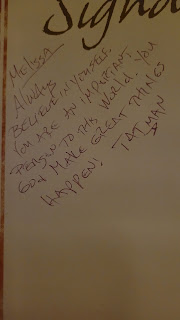 Signa
Melissa
Always
BELIEVE IN YOURSELF.
YOU ARE AN IMPORTANT
PERSON TO THIS WORLD. YOU
MAKE GREAT THINGS
HAPPEN!